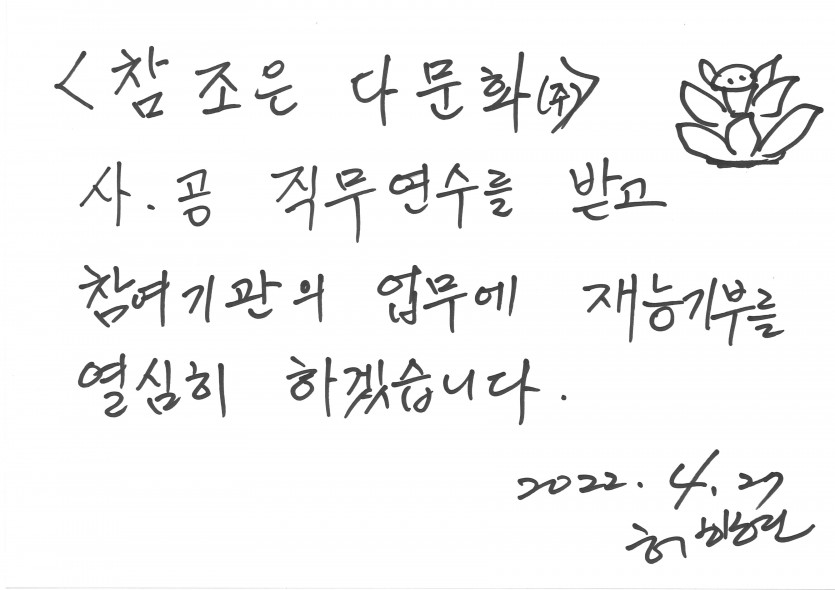 <참조은 다문화(주)>
사.공 직무연수를 받고
참여기관의 업무에 재능기부를
열심히 하겠습니다.
2022. 4. 27
허